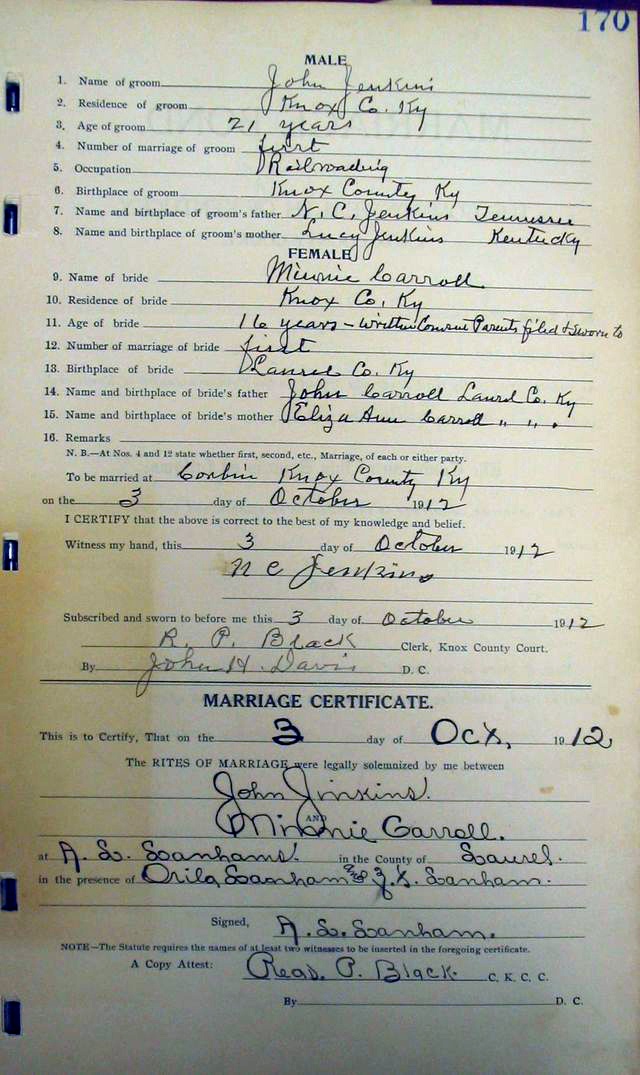 170
MALE
1. Name of groom John Jenkins
2. Residence of groom Knox Co. Ky
3. Age of groom 21 years
4. Number of marriage of groom first
5. Occupation Railroading
6. Birthplace of groom Knox County Ky
7. Name and birthplace of groom's father N. C. Jenkins Tennessee
8. Name and birthplace of groom's mother Lucy Jenkins Kentucky
FEMALE
9. Name of bride Minnie Carroll
10. Residence of bride Knox Co. Ky
11. Age of bride 16 years - written Consent Parents filed & sworn to
12. Number of marriage of bride first
13. Birthplace of bride Laurel Co. Ky
14. Name and birthplace of bride's father John Carroll Laurel Co. Ky
15. Name and birthplace of bride's mother Eliza Ann Carroll " " "
16. Remarks
N. B.—At Nos. 4 and 12 state whether first, second, etc., Marriage, of each or either party.
To be married at Corbin Knox County Ky
on the 3 day of October 1912
I CERTIFY that the above is correct to the best of my knowledge and belief.
Witness my hand, this 3 day of October 1912
N C Jenkins
Subscribed and sworn to before me this 3 day of October 1912
R. P. Black Clerk, Knox County Court.
By John H. Davis D. C.
MARRIAGE CERTIFICATE.
This is to Certify, That on the 3 day of Oct, 1912
The RITES OF MARRIAGE were legally solemnized by me between
John Jinkins.
AND
Minnie Carroll.
at A. L. Lanhams. in the County of Laurel.
in the presence of Lanham and Lanham.
Signed, A. L. Lanham.
NOTE—The Statute requires the names of at least two witnesses to be inserted in the foregoing certificate.
A Copy Attest: P. Black C. K. C. C.
By D. C.